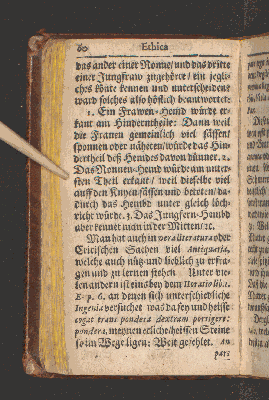 60 Ethica
das ander einer Nonne/ und das dritte
einer Jungfraw zugehörte/ ein jegli-
ches könte kennen und unterscheiden
ward solches also höflich beantwortet:
1. Ein Frawen-Hemd würde er-
kant am Hinderntheile: Dann weil
die Frauen gemeinlich viel sässen/
sponnen oder näheten/würde das Hin-
dertheil deß Hemdes davon dünner. 2.
Das Nonnen-Hemd würde am unter-
sten Theil erkant/ weil dieselbe viel
auff den Knyen sässen und beteten/ da-
durch das Hembd unter gleich löch-
richt würde. 3. Das Jungfern-Hembd
aber kennet man in der Mitten/ ꝛc.
Man hat auch in re literaria oder
Critischen Sachen viel
welche auch nütz und lieblich zu erfra-
gen und zu lernen stehen Unter vie-
len andern ist eins bey dem Horatio lib. 1.
E- p. 6. an denen sich unterschiedliche
Ingenia versuchet was da sey und heisse
cogat trans pondera dextram porrigere:
pondera, meynen etliche/ heissen Steine
so im Wege ligen: Weit gefehlet. An
pars